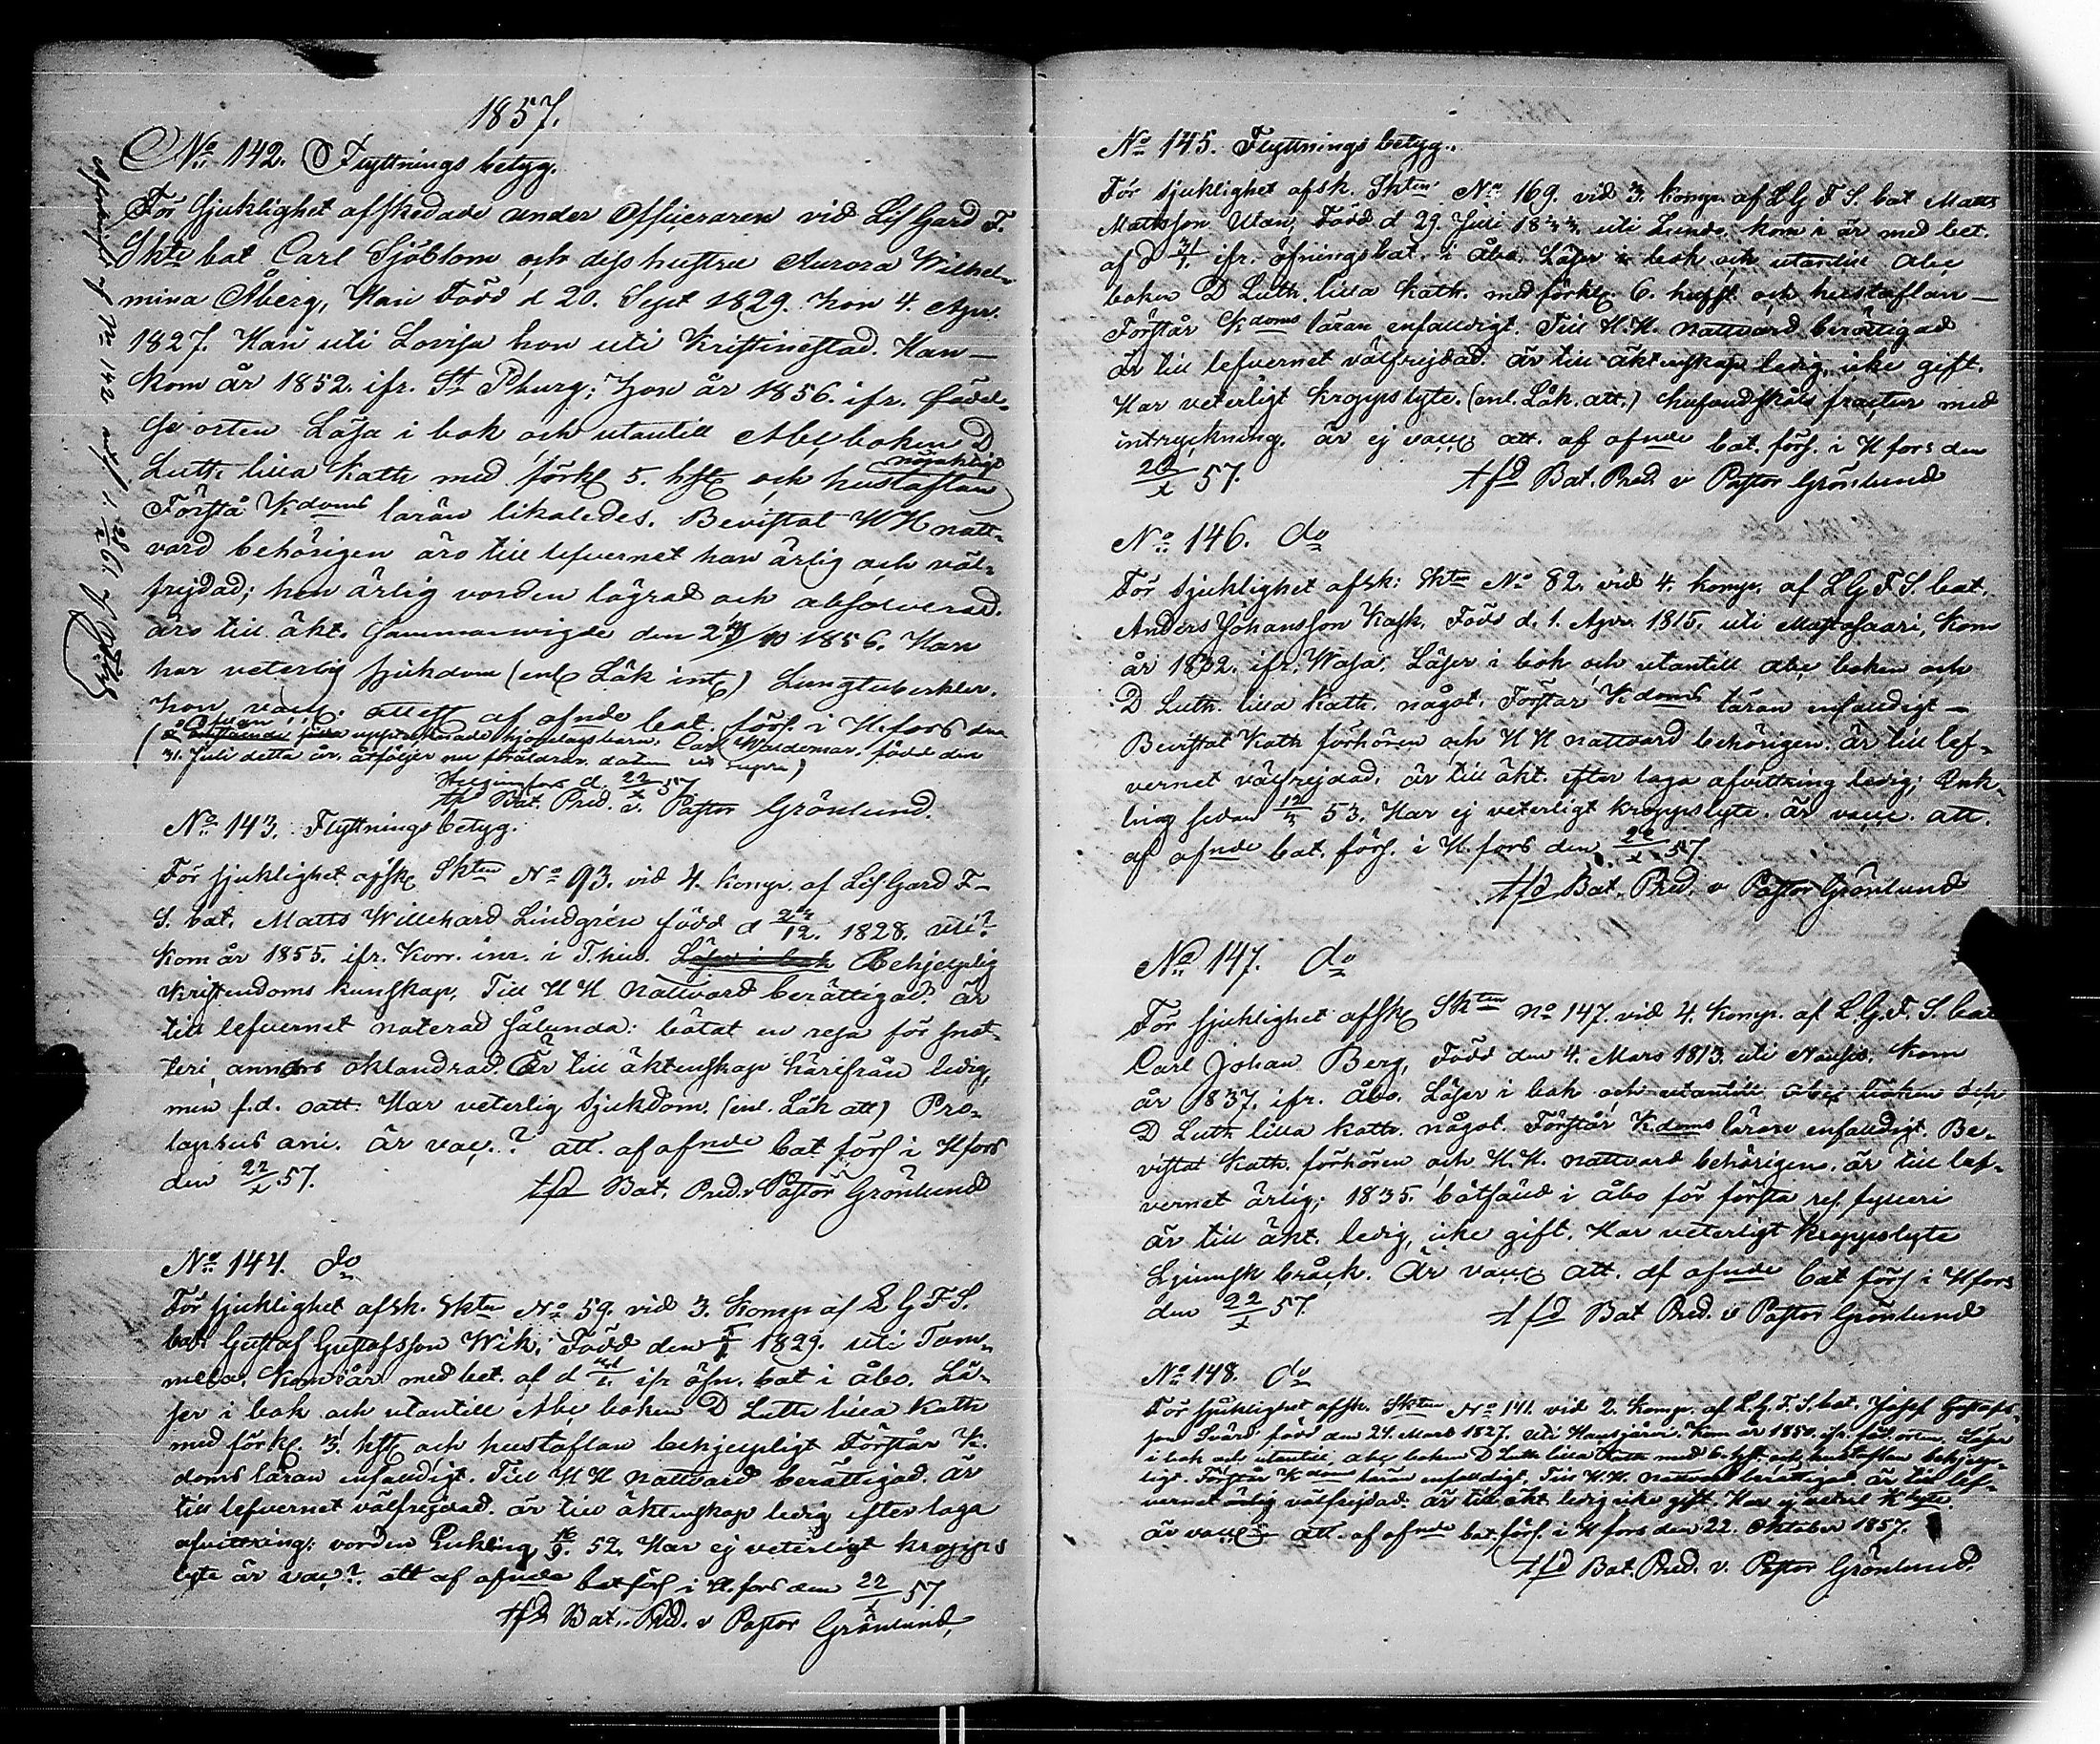 1857.
No 142. Flyttnings betyg.
För sjuklighet afskedade under Officeraren vid Lif Gard F.
Skte bat Carl Sjöblom och dess hustru Aurora Wilhel-
mina Åberg, Han Född d 20. Sept 1829. hon 4. Apr.
1827. Han uti Lovisa hon uti Kristinestad. Han —
kom år 1852. ifr. St Pburg; hon år 1856. ifr. födel-
se orten Läsa i bok och utantill Abc boken D
Luth lilla Kath med förkl 5. hft och hustaflan
nöjaktigt
Förstå Kdoms läran likaledes. Bevistat HH natt-
vard behörigen äro till lefvernet han ärlig och väl-
frejdad; hon ärlig vorden lägrad och absolverad.
äro till äkt. sammanvigde den 1856. Han
har veterlig sjukdom (enl Läk int) Lungtuberkler.
hon vacc. attest af ofnde bat. förs. i H.fors den
( Ofvan upptecknade barn, Carl Waldemar, född den
31. Juli detta år, åtföljer nu föräldrar. datum ut supra)
Helsingfors d. 22/x 57
tfd Bat. Pred. v. Pastor Grönlund.
No 143. Flyttnings betyg.
För sjuklighet afsk Skten No 93. vid 4. komp. af Lif Gard F-
S. bat. Matts Willehard Lindgrén född d 24/12. 1828. uti?
kom år 1855. ifr. Korr. inr. i T.hus. Läser i bok Behjelplig
Kristendoms kunskap, Till H H Nattvard berättigad. är
till lefvernet noterad sålunda: bötat en resa för snat-
teri, annars oklandrad. Är till äktenskap härifrån ledig,
men f.d. Har veterlig sjukdom. (enl. Läk att) Pro-
lapsus ani. är vac.? att. af ofnde bat förs i Hfors
den 22/x 57.
tfd Bat. Pred. v Pastor Grönlund
No 144. do
För sjuklighet afsk. Skten No 59. vid 3. Komp af L G F S.
bat Gustaf Gustafsson Wik, Född den 1829. uti Tam-
mela. Kom i år med bet. af d ifr öfn. bat i Åbo. Lä-
ser i bok och utantill Abc boken D Luth lilla Kath
med förkl. 3. hft och hustaflan behjelpligt Förstår K.
doms läran enfaldigt. Till H H nattvard berättigad. är
till lefvernet välfrejdad. är till äktenskap ledig efter laga
afvittring; vorden Enkling 16/9. 52. Har ej veterligt kropps
lyte är vac? att af ofnde bat förs i H.fors den 22/x 57
tfd Bat. Pred. v Pastor Grönlund,
No 145. Flyttnings betyg.
För sjuklighet afsk. Skten No 169. vid 3. komp. af L G F S. bat Matts
Mattsson Utan, Född d 29. Juli 1833. uti Lundo, kom i år med bet.
af d ifr. öfningsbat. i Åbo. Läser i bok och utantill Abc
boken D Luth. lilla Kath. med förkl. 6. hufst. och hustaflan —
Förstår Kdoms läran enfaldigt. Till H.H. nattvard berättigad
är till lefvernet välfrejdad. är till äktenskap ledig, icke gift.
Har veterligt kroppslyte. (enl. Läk. att.) hufvudskåls fractur med
intryckning. är ej vacc att. af ofnde bat. förs. i H fors den
22/x 57.
tfd Bat. Pred. v Pastor Grönlund
No 146. do
För sjuklighet afsk: Skten No 82. vid 4. komp. af L G F S. bat.
Anders Johansson Kask, Född d. 1. Apr. 1815. uti Maxtosaari, kom
år 1832. ifr. Wasa. Läser i bok och utantill abc boken och
D Luth. lilla Kath. något. Förstår Kdoms läran enfaldigt —
Bevistat Kath förhören och H H nattvard behörigen. är till lef-
vernet välfrejdad. är till äkt. efter laga afvittring ledig; Enk-
ling sedan 12/3 53. Har ej veterligt kroppslyte. är vacc. att.
af ofnde bat. förs. i H.fors den 22/x 57.
tfd Bat. Pred. v Pastor Grönlund
No 147. do
För sjuklighet afsk Skten No 147. vid 4. komp. af L.G.F.S. bat
Carl Johan Berg, Född den 4. Mars 1813. uti Nousis. kom
år 1837. ifr. Åbo. Läser i bok och utantill abc boken och
D Luth lilla Kath. något. Förstår Kdoms läran enfaldigt. Be-
vistat Kath. förhören och H.H. nattvard behörigen. är till lef-
vernet ärlig; 1835. båtsfånd i Åbo för första res. fylleri
är till äkt. ledig, icke gift. Har veterligt kroppslyte
Ljumsk bråck. är vacc att. af ofnde bat förs i Hfors
den 22/x 57.
tfd Bat Pred. v Pastor Grönlund
No 148. do
För sjuklighet afsk. Skten No 141. vid 2. komp. af L.G.F.S. bat. Josef Gustafs-
son Svärd född den 24. Mars 1827. uti Hausjärvi. Kom år 1854. ifr. föd. orten. Läser
i bok och utantill, abc boken D Luth lilla Kath med 6. hft. och hustaflan behjelp-
ligt. Förstår Kdoms läran enfaldigt. Till H.H. nattvard berättigad. är till lef-
vernet ärlig välfrejdad. är till äkt. ledig icke gift. Har ej veterl K.lyte
är vacc att. af ofnde bat. förs. i Hfors den 22. Oktober 1857.
tfd Bat. Pred. v. Pastor Grönlund.